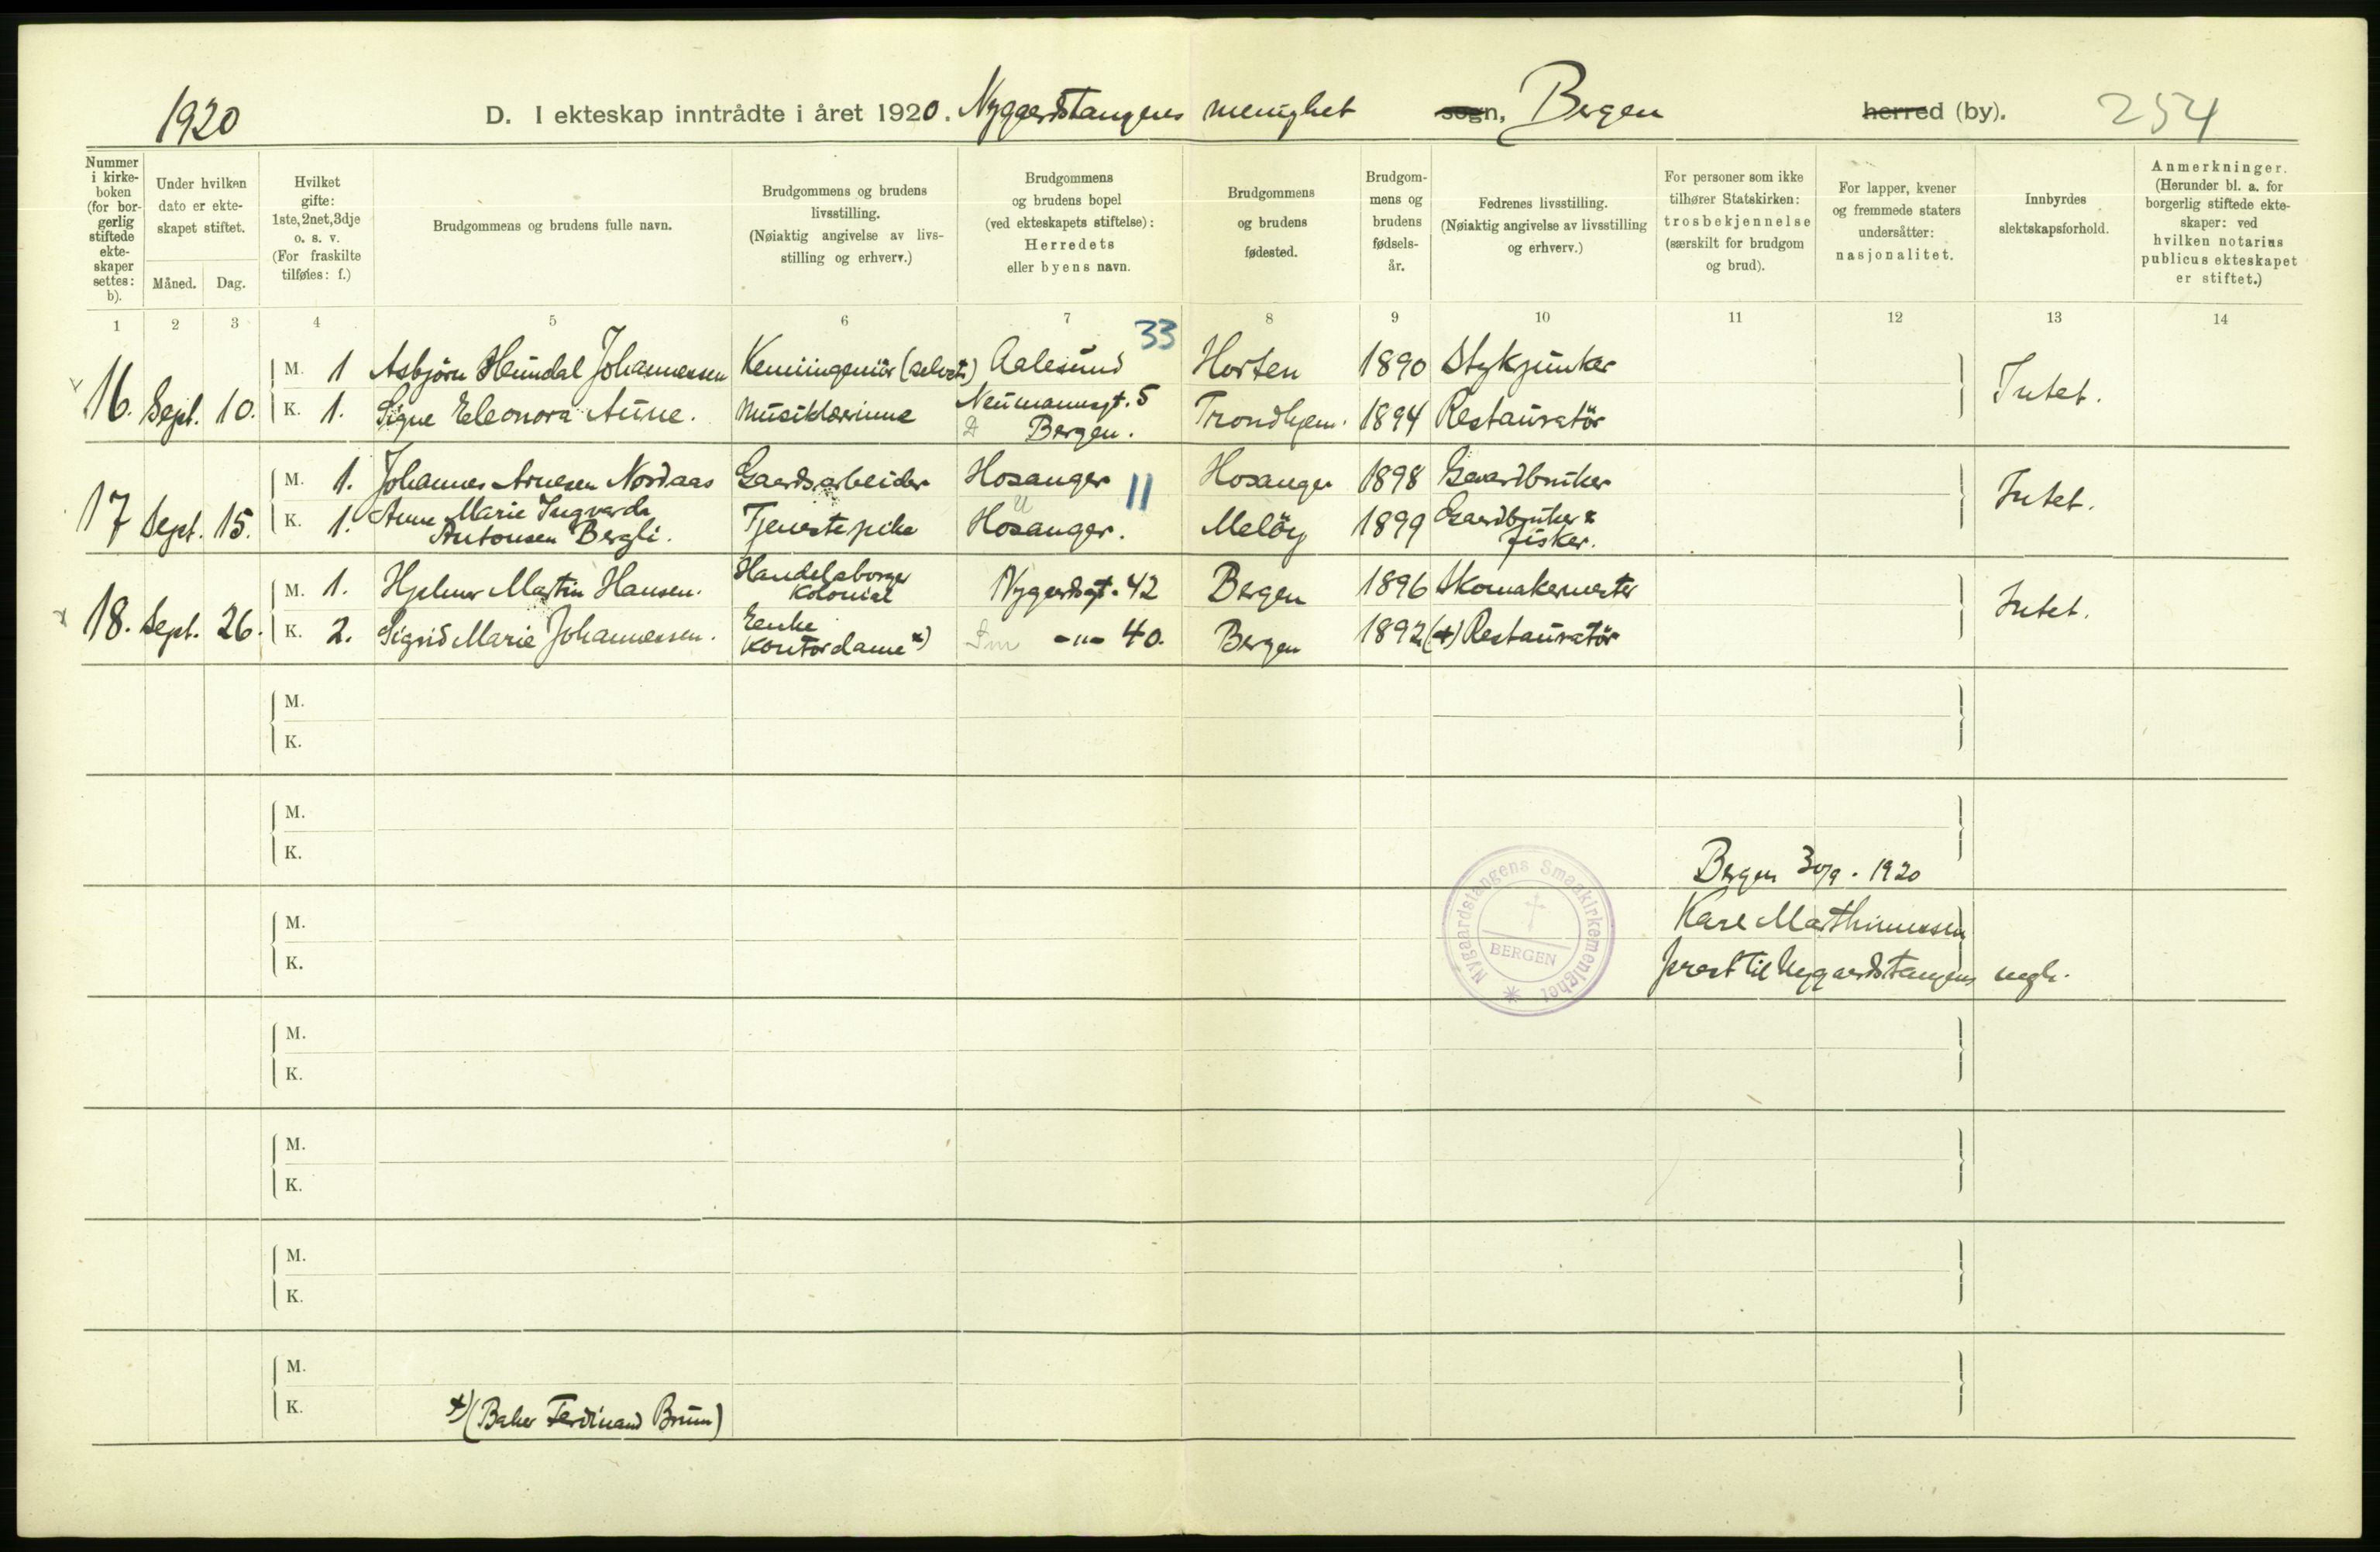 1920 D. I ekteskap inntrådte i året 1920. Nyggerdstangens menighet sogn, Bergen herred (by). 254
Nummer i kirke-boken (for bor-gerlig stiftede ekte-skaper settes: b).
Under hvilken dato er ekte-skapet stiftet.
Måned. Dag.
Hvilket gifte: 1ste, 2net, 3dje o. s. v. (For fraskilte tilføies: f.)
Brudgommens og brudens fulle navn.
Brudgommens og brudens livsstilling. (Nøiaktig angivelse av livs-stilling og erhverv.)
Brudgommens og brudens bopel (ved ekteskapets stiftelse): Herredets eller byens navn.
Brudgommens og brudens fødested.
Brudgom-mens og brudens fødsels-år.
Fedrenes livsstilling. (Nøiaktig angivelse av livsstilling og erhverv.)
For personer som ikke tilhører Statskirken: trosbekjennelse (særskilt for brudgom og brud).
For lapper, kvener og fremmede staters undersåtter: nasjonalitet.
Innbyrdes slektskapsforhold.
Anmerkninger. (Herunder bl. a. for borgerlig stiftede ekte-skaper: ved hvilken notarius publicus ekteskapet er stiftet.)
1 2 3 4 5 6 7 8 9 10 11 12 13 14
33
M. 1 Asbjörn Heimdal Johannessen Kemiingeniör Aalesund Horten 1890 Stykjunker
16. Sept. 10. Intet.
K. 1. Signe Eleonora Aune. Musiklærinne Neumannsgt. 5 Bergen. Trondhjem. 1894 Restauratör
M. 1. Johannes Arnesen Nordaas Gaardsarbeider Hosanger 11 Hosanger 1898 Gaardbruker
17 Sept. 15. Intet.
K. 1. Anne Marie Ingvarda Antonsen Bergli. Tjenestepike Hosanger. Melöy 1899 Gaardbruker & fisker.
M. 1. Hjalmar Martin Hansen. Handelsborger Kolonial Nygaardsgt. 42 Bergen 1896 Skomakermester
18. Sept. 26. Intet.
K. 2. Sigrid Marie Johannessen. Enke Kontordame x) -"- 40. Bergen 1892 (+) Restauratör
M.
K.
M.
K.
Nygaardstangens Smaakirkemenighet BERGEN
Bergen 30/9. 1920
M.
Karl Marthinussen
K.
prest til Nygaardstangens mgh.
M.
K.
M.
K.
M.
K.
M.
K.
x) (Baker Ferdinand Bruun)